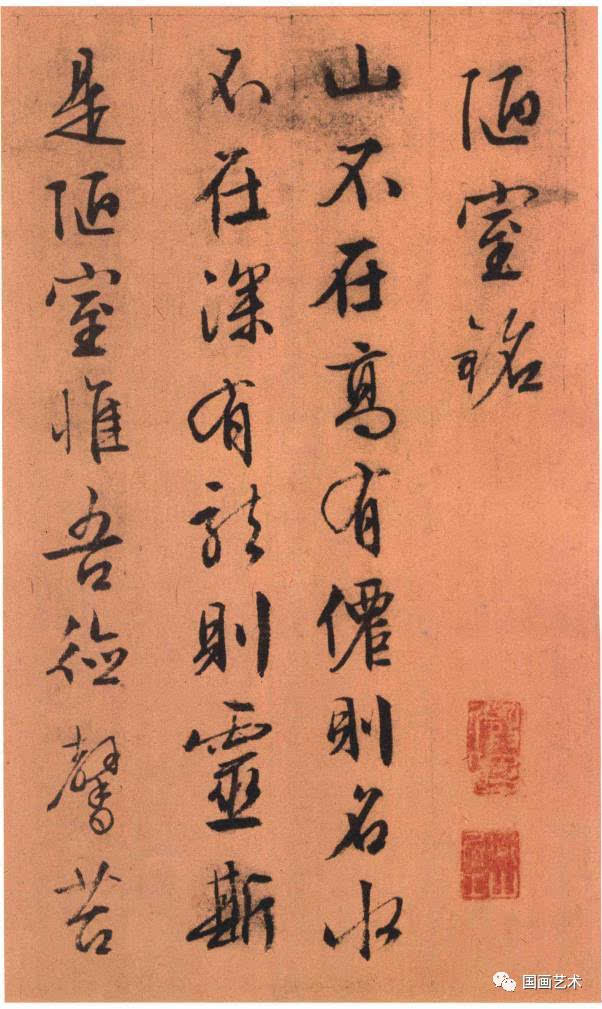 陋室銘
山不在高有僊則名水
不在深有龍則靈斯
是陋室惟吾德馨苔
国画艺术